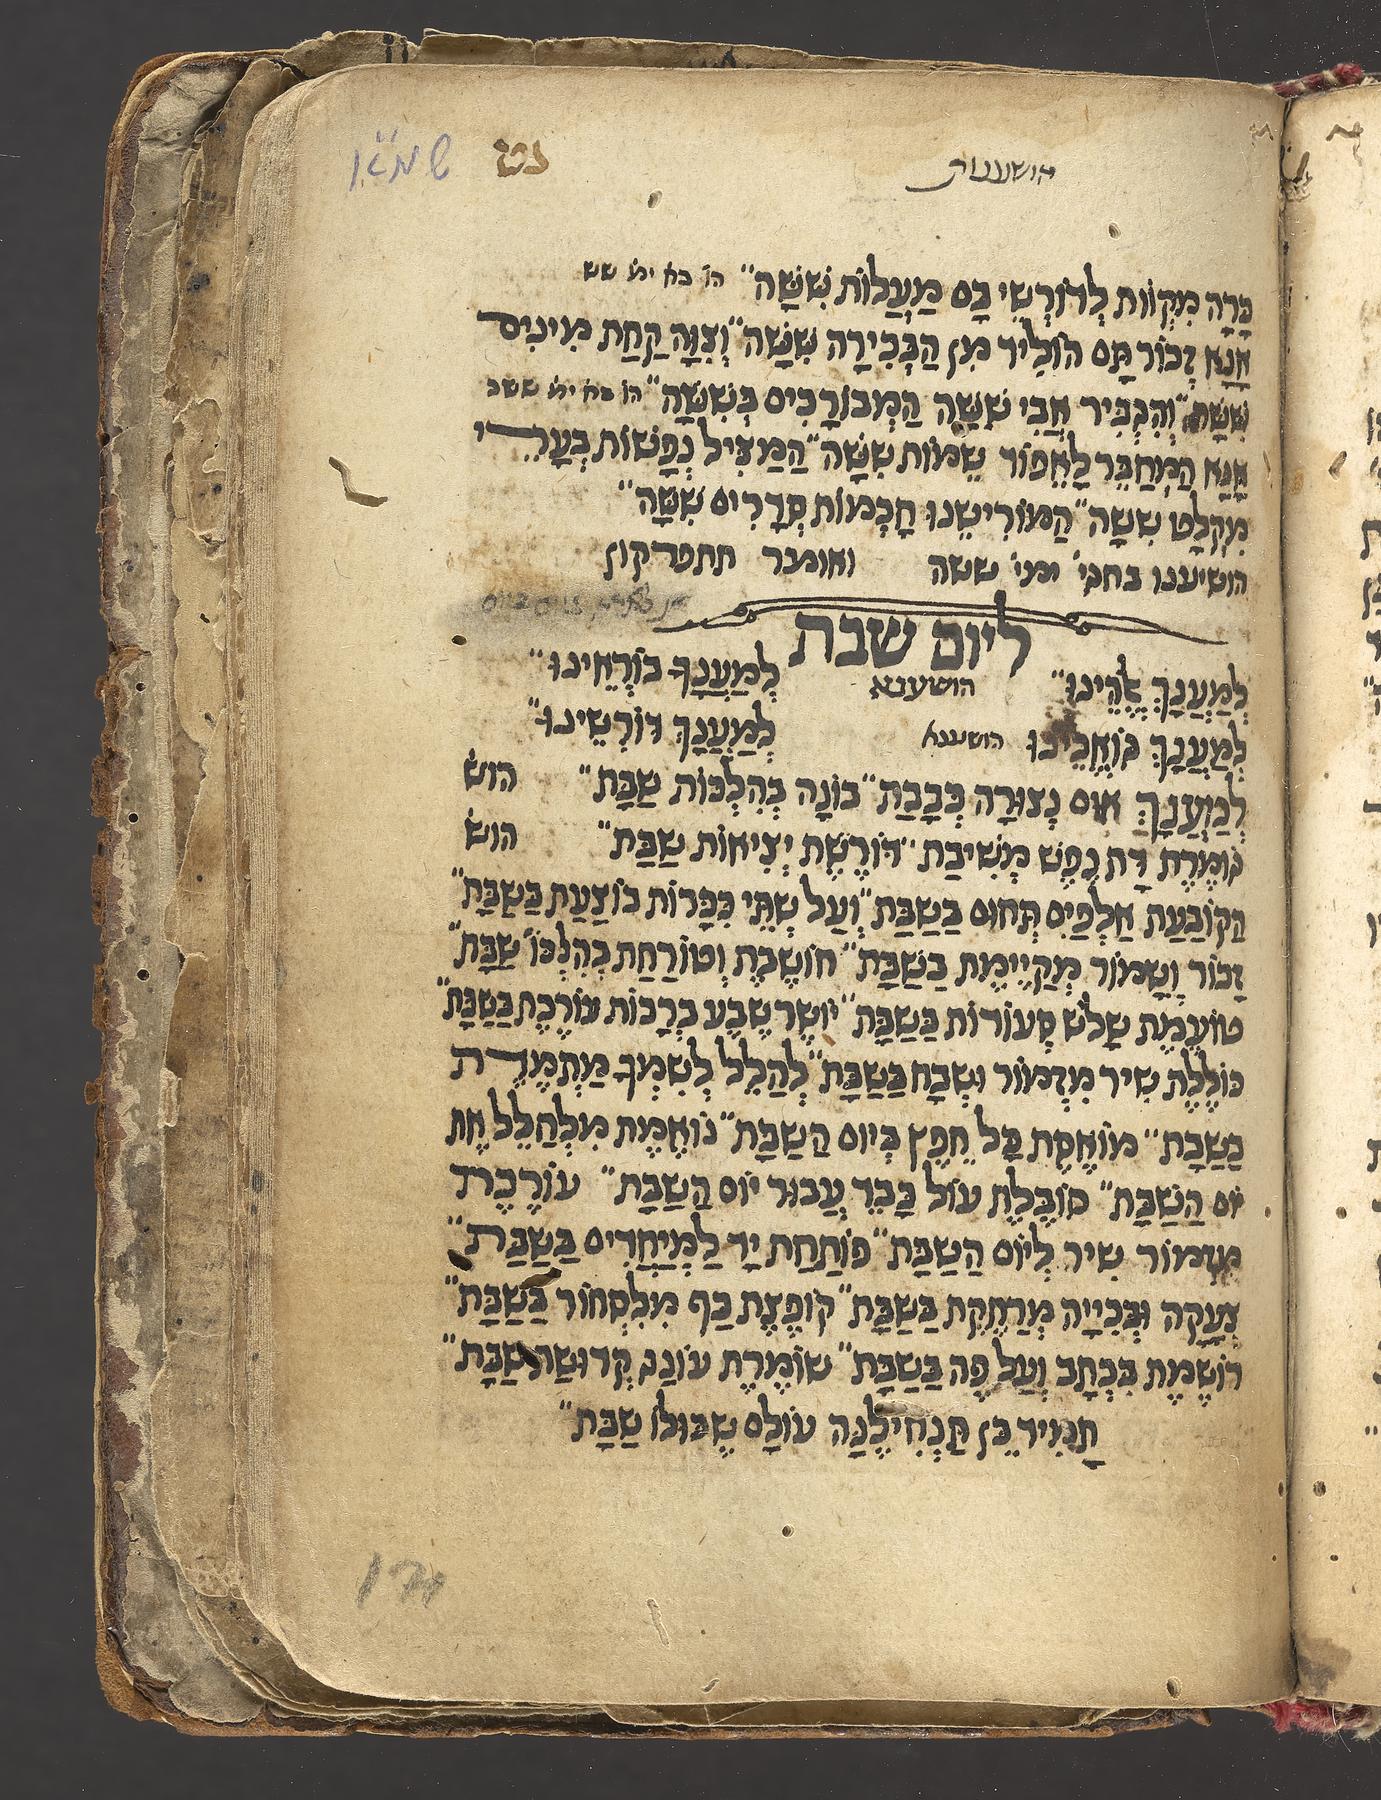 הושענות
נט
כָּרָה מִקְוֹות לְדוֹרְשֵׁי בָּם מַעֲלוֹת שִׁשָּׁה״ הו׳ בא׳
אָנָּא זְכוֹר תָּם הוֹלִיד מִן הַבְּכִירָה שִׁשָּׁה״ וְצִוָּה קַחַת מִינִים
שִׁשָּׁה״ וְהִגְבִּיר אֲבִי שִׁשָּׁה הַמְבוֹרָכִים בְּשִׁשָּׁה״ הו׳ בא׳
אָנָּא הַמְחַבֵּר לָאֵפוֹד שֵׁמוֹת שִׁשָּׁה״ הַמַּצִּיל נְפָשׁוֹת בְּעָרֵי
מִקְלָט שִׁשָּׁה״ הַמּוֹרִישֵׁנוּ חָכְמוֹת סְדָרִים שִׁשָּׁה״
הושיענו ששה ואומר תתפרקון
ליום שבת
לְמַעֲנָךְ אֱלֹהֵינוּ״ הושענא לְמַעֲנָךְ בּוֹרְאֵינוּ״
לְמַעֲנָךְ גּוֹאֲלֵינוּ הושענא לְמַעֲנָךְ דּוֹרְשֵׁינוּ״
לְמַעֲנָךְ אוֹם נְצוּרָה כְּבָבַת״ בּוֹנָה בְּהִלְכּוֹת שַׁבָּת״ הוש׳
גּוֹמֶרֶת דָּת נֶפֶשׁ מְשִׁיבַת״ דּוֹרֶשֶׁת יְצִיאוֹת שַׁבָּת״ הוש׳
הַקּוֹבַעַת אַלְפַּיִם תְּחוּם בַּשַׁבָּת״ וְעַל שְׁתֵּי כִּכָּרוֹת בּוֹצַעַת בַּשַׁבָּת״
זָכוֹר וְשָׁמוֹר מְקַיֶּימֶת בַּשַׁבָּת״ חוֹשֶׁבֶת וְטוֹרַחַת בְּהִלְכּוֹ׳ שַׁבָּת״
טוֹעֶמֶת שָׁלֹשׁ סְעוּדוֹת בַּשַׁבָּת״ יוֹשֶׁר שֶׁבַע בְּרָכוֹת עוֹרֶכֶת בַּשַׁבָּת
כּוֹלֶלֶת שִׁיר מִזְמוֹר וּשְׁבָח בַּשַׁבָּת״ לְהַלֵּל לְשִׁמְךָ מַתְמֶדֶת
בַּשַׁבָּת״ מוֹאֶסֶת כָּל חֵפֶץ בְּיוֹם הַשַׁבָּת״ נוֹאֶמֶת מִלְחַלֵּל אֶת
יוֹם הַשַׁבָּת״ סוֹבֶלֶת עוֹל כָּבֵד עֲבוּר יוֹם הַשַׁבָּת״ עוֹרֶכֶת
מִזְמוֹר שִׁיר לְיוֹם הַשַׁבָּת״ פּוֹתַחַת יָד לַמְיַחֲדִים בַּשַׁבָּת״
צְעָקָה וּבְכִיָּיה מְרַחֶקֶת בַּשַׁבָּת״ קוֹפֶצֶת כַּף מִלִּסְחוֹר בַּשַׁבָּת״
רוֹשֶׁמֶת בִּכְתָב וְעַל פֶּה בַּשַׁבָּת״ שׁוֹמֶרֶת עוֹנַג קְדוּשַׁת שַׁבָּת״
תָּמִיד כֵּן תַּנְחִילֶנָּה עוֹלָם שֶׁכּוּלּוֹ שַׁבָּת״